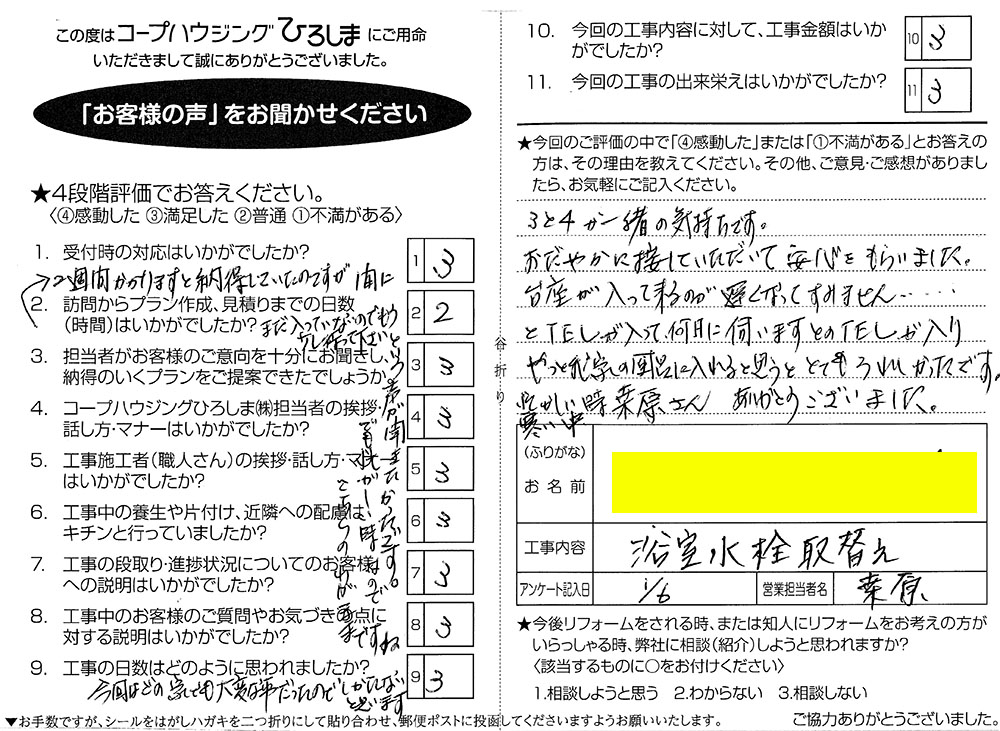 この度はコープハウジングひろしまにご用命
いただきまして誠にありがとうございました。
「お客様の声」をお聞かせください
★4段階評価でお答えください。
〈④感動した ③満足した ②普通 ①不満がある〉
1. 受付時の対応はいかがでしたか?
1 3
→2週間かかりますと納得していたのですが 間に
まだ入っていないのでもう
少し待って下さいと
いう声が聞きたかったです。
でも忙がしい時なので
こちらのわがままですね
2. 訪問からプラン作成、見積りまでの日数
(時間)はいかがでしたか?
2 2
3. 担当者がお客様のご意向を十分にお聞きし、
納得のいくプランをご提案できたでしょうか
3 3
4. コープハウジングひろしま㈱担当者の挨拶・
話し方・マナーはいかがでしたか?
4 3
5. 工事施工者(職人さん)の挨拶・話し方・マナー
はいかがでしたか?
5 3
6. 工事中の養生や片付け、近隣への配慮は、
キチンと行っていましたか?
6 3
7. 工事の段取り・進捗状況についてのお客様
への説明はいかがでしたか?
7 3
8. 工事中のお客様のご質問やお気づきの点に
対する説明はいかがでしたか?
8 3
9. 工事の日数はどのように思われましたか?
9 3
今回はどの家でも大変な年だったのでしかたない
と思います
谷折り
10. 今回の工事内容に対して、工事金額はいか
がでしたか?
10 3
11. 今回の工事の出来栄えはいかがでしたか?
11 3
★今回のご評価の中で「④感動した」または「①不満がある」とお答えの
方は、その理由を教えてください。その他、ご意見・ご感想がありまし
たら、お気軽にご記入ください。
3と4が一緒の気持ちです。
おだやかに接していただいて安心をもらいました。
台座が入って来るのが遅くなってすみません……
とTELが入って、何月に伺いますとのTELが入り
やっと我家の風呂に入れると思うと とてもうれしかったです。
忙がしい時 桑原さん ありがとうございました。
寒い中
(ふりがな)
お名前
工事内容
浴室水栓取替え
アンケート記入日
1/6
営業担当者名
桑原
★今後リフォームをされる時、または知人にリフォームをお考えの方が
いらっしゃる時、弊社に相談(紹介)しようと思われますか?
〈該当するものに○をお付けください〉
1.相談しようと思う 2.わからない 3.相談しない
▼お手数ですが、シールをはがしハガキを二つ折りにして貼り合わせ、郵便ポストに投函してくださいますようお願いいたします。
ご協力ありがとうございました。